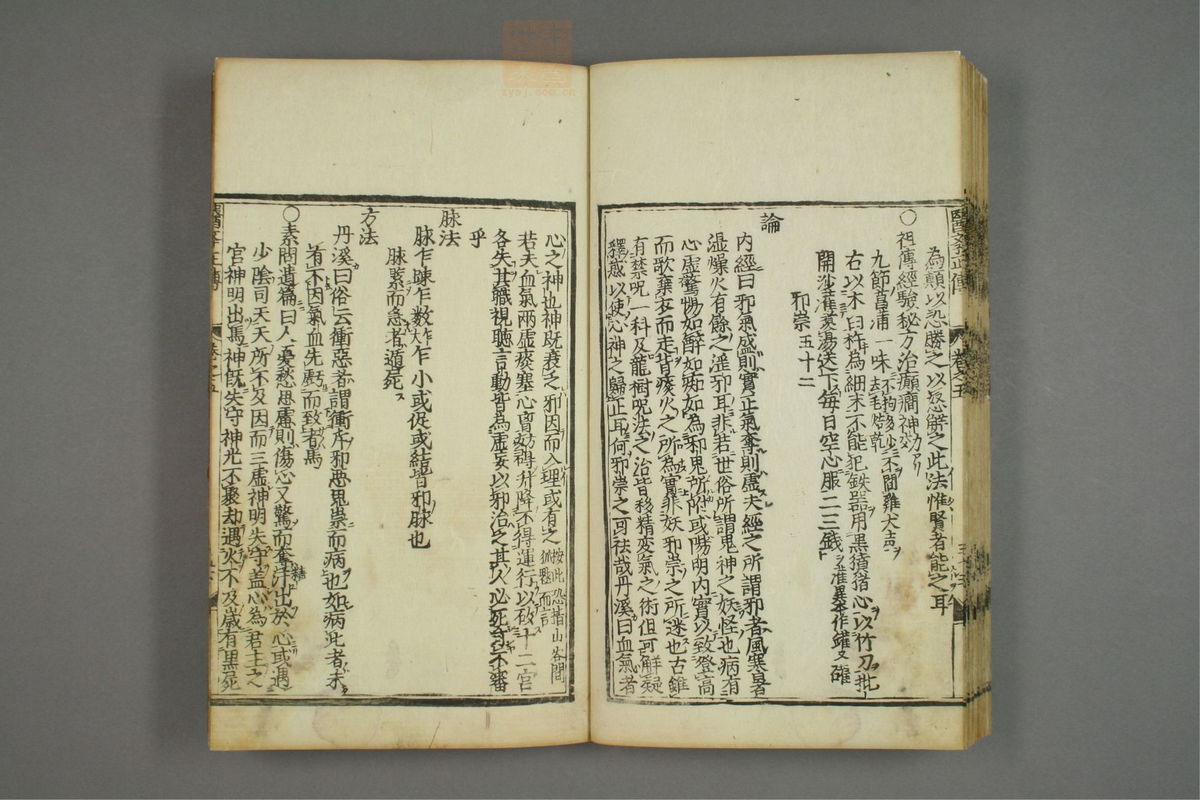 為顛以恐勝之以怒解之此法惟賢者能之耳
○祖傳經驗秘方治癲癇神効
九節菖蒲一味去毛焙乾不拘多少不聞雞犬声
右以木臼杵為細末不能犯鉄器用黒豶猪心以竹刀批
開沙罐煑湯送下毎日空心服二三銭
邪祟五十二
論
内經曰邪氣盛則實正氣奪則虚夫經之所謂邪者風寒暑
湿燥火有餘之淫邪耳非若世俗所謂鬼神之妖怪也病有
心虚驚惕如醉如痴如為邪鬼所附或陽明内實以致登高
而歌棄衣而走皆痰火之所為實非妖邪祟之所迷也古雖
有禁呪一科及龍樹呪法之治皆移精変氣之術但可解疑
釋惑以使心神之歸正耳何邪祟之可祛哉丹溪曰血氣者
心之神也神既衰乏邪因而入理或有之
若夫血氣兩虚痰塞心胷妨碍升降不得運行以致十二官
各失其職視聴言動皆為虚妄以邪治之其人必死吁不審
乎
脉法
脉乍踈乍数乍大乍小或促或結皆邪脉也
脉緊而急者遁尸
方法
丹溪曰俗云衝惡者謂衝斥邪惡鬼祟而病也如病此者未
有不因氣血先虧而致者焉
○素問遺篇曰人憂愁思慮則傷心又驚而奪汗出於心或遇
少陰司天天所不及因而三虚神明失守盖心為君主之
官神明出焉神既失守神光不聚却遇火不及歳有黒死